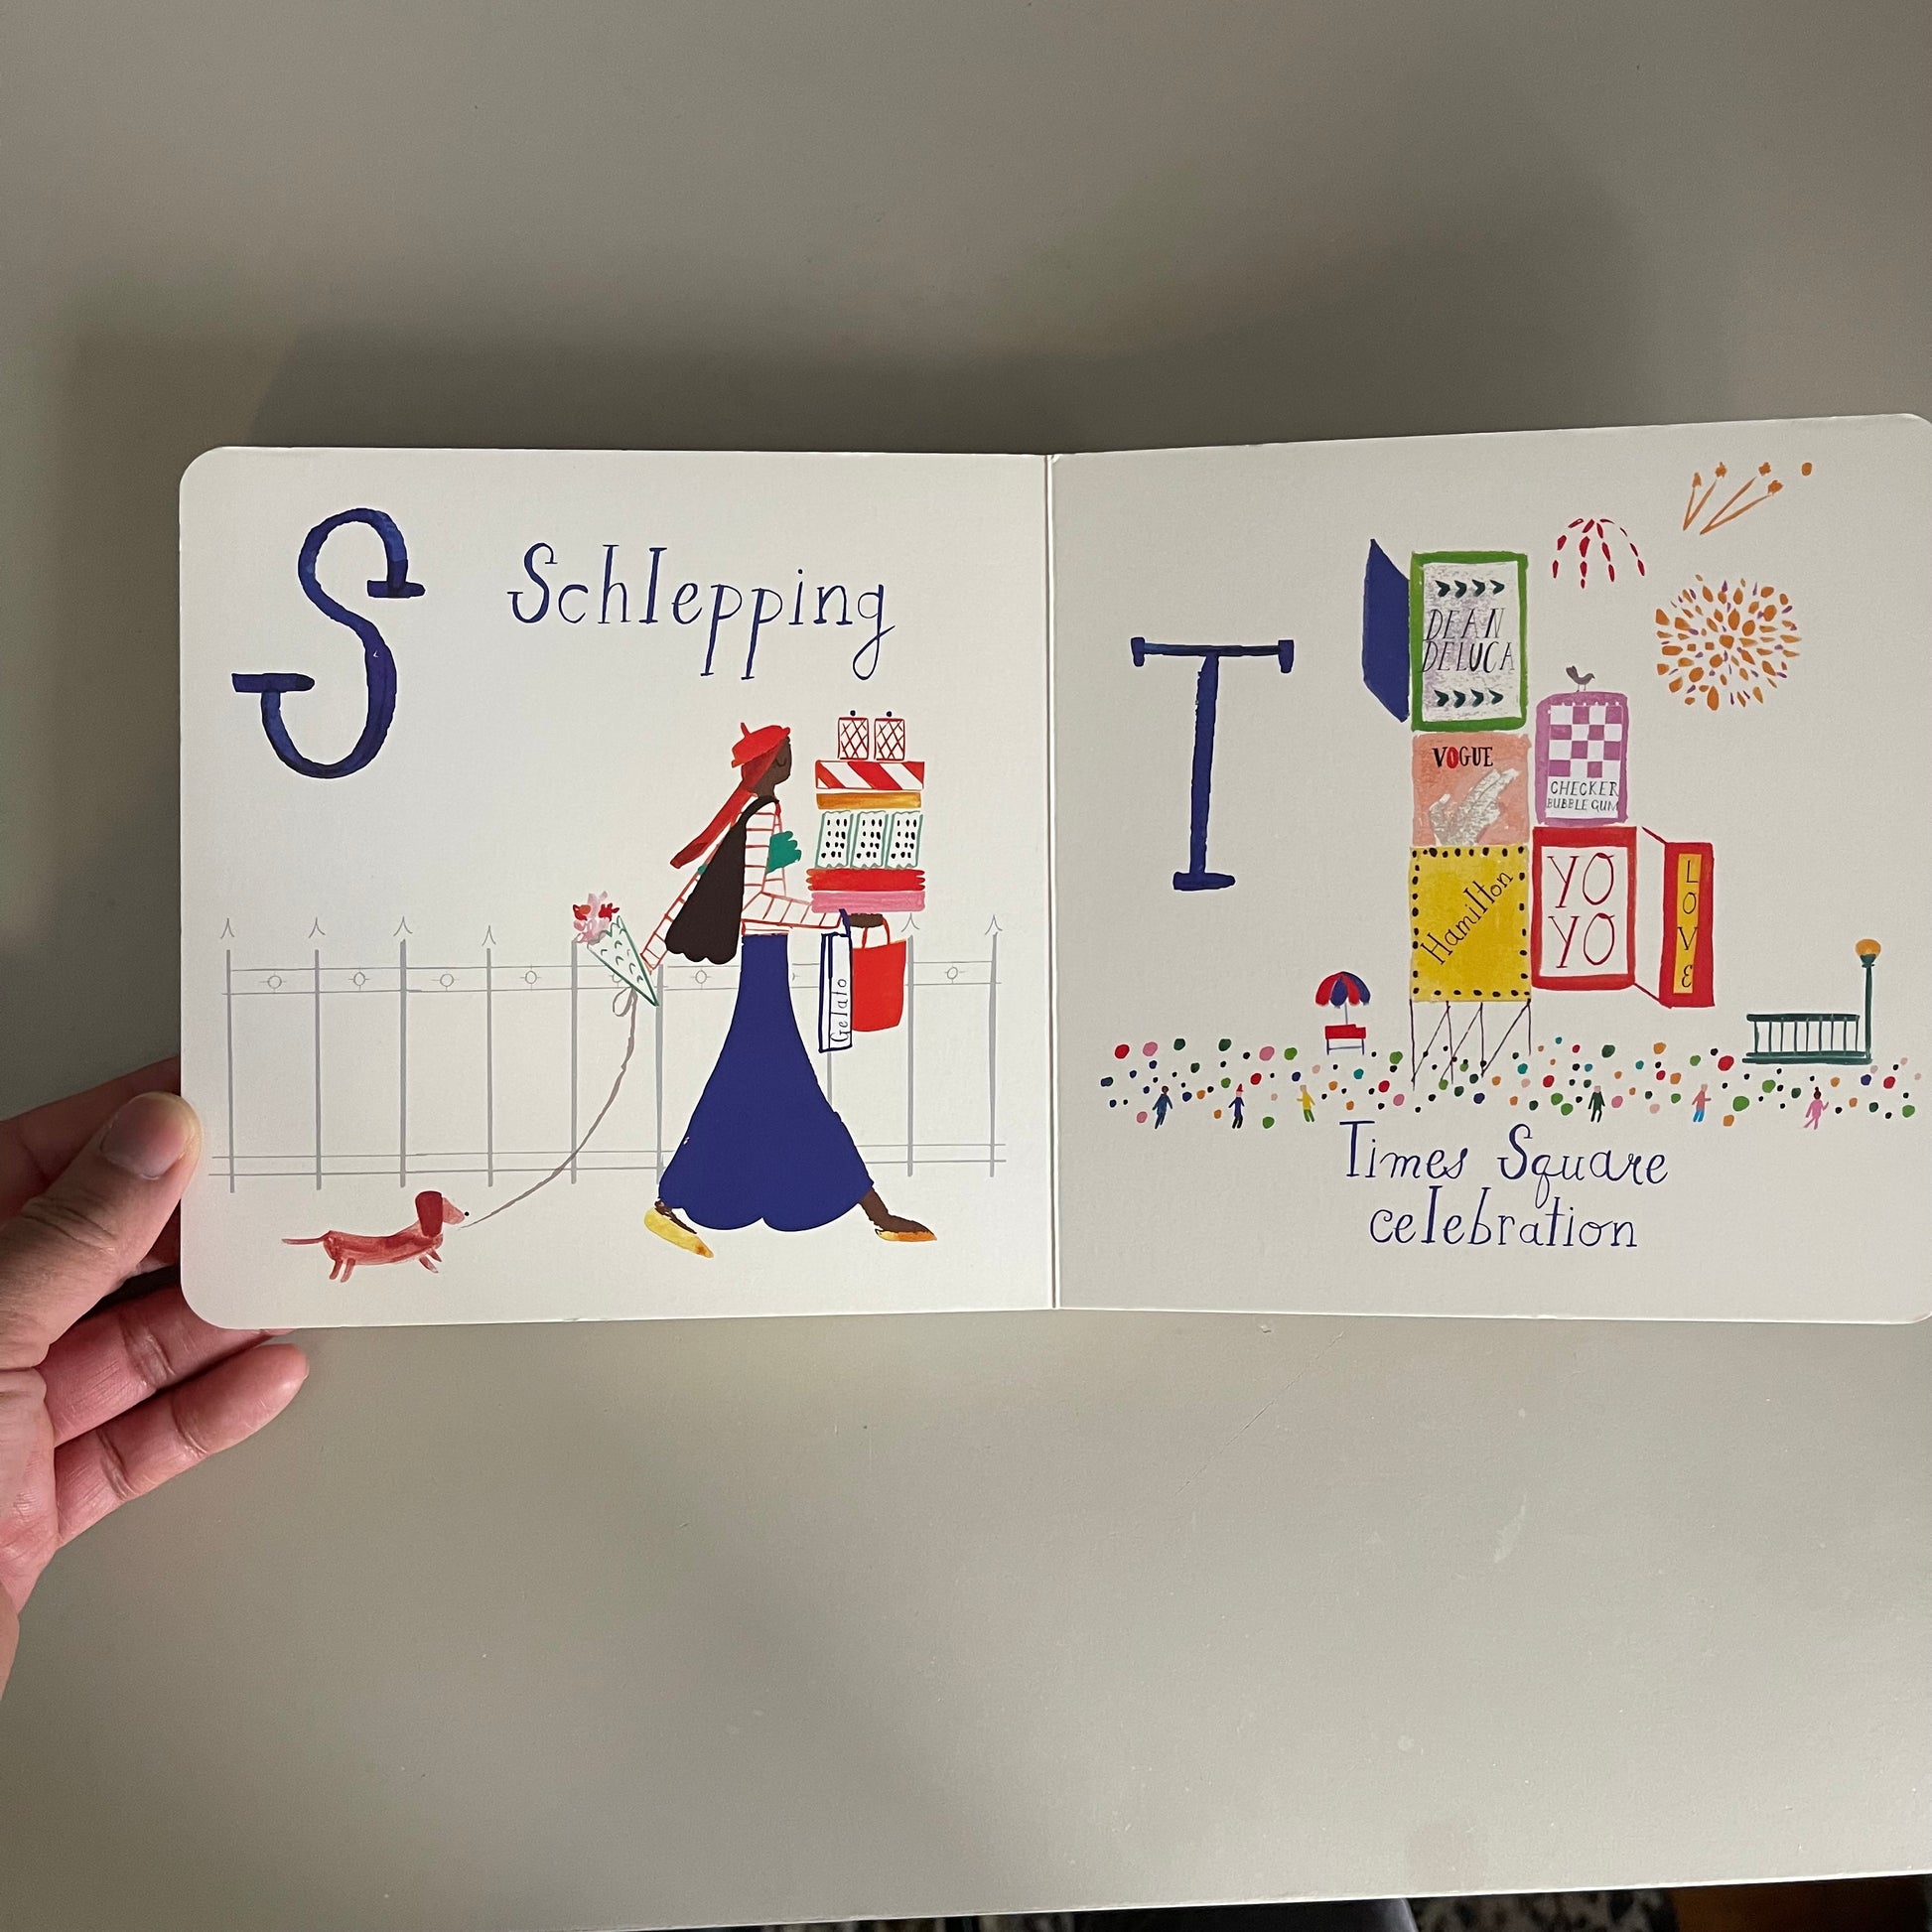 S
Schlepping
Gelato
T
DEAN
DELUCA
VOGUE
CHECKER
BUBBLE GUM
Hamilton
YO
YO
LOVE
Times Square
celebration